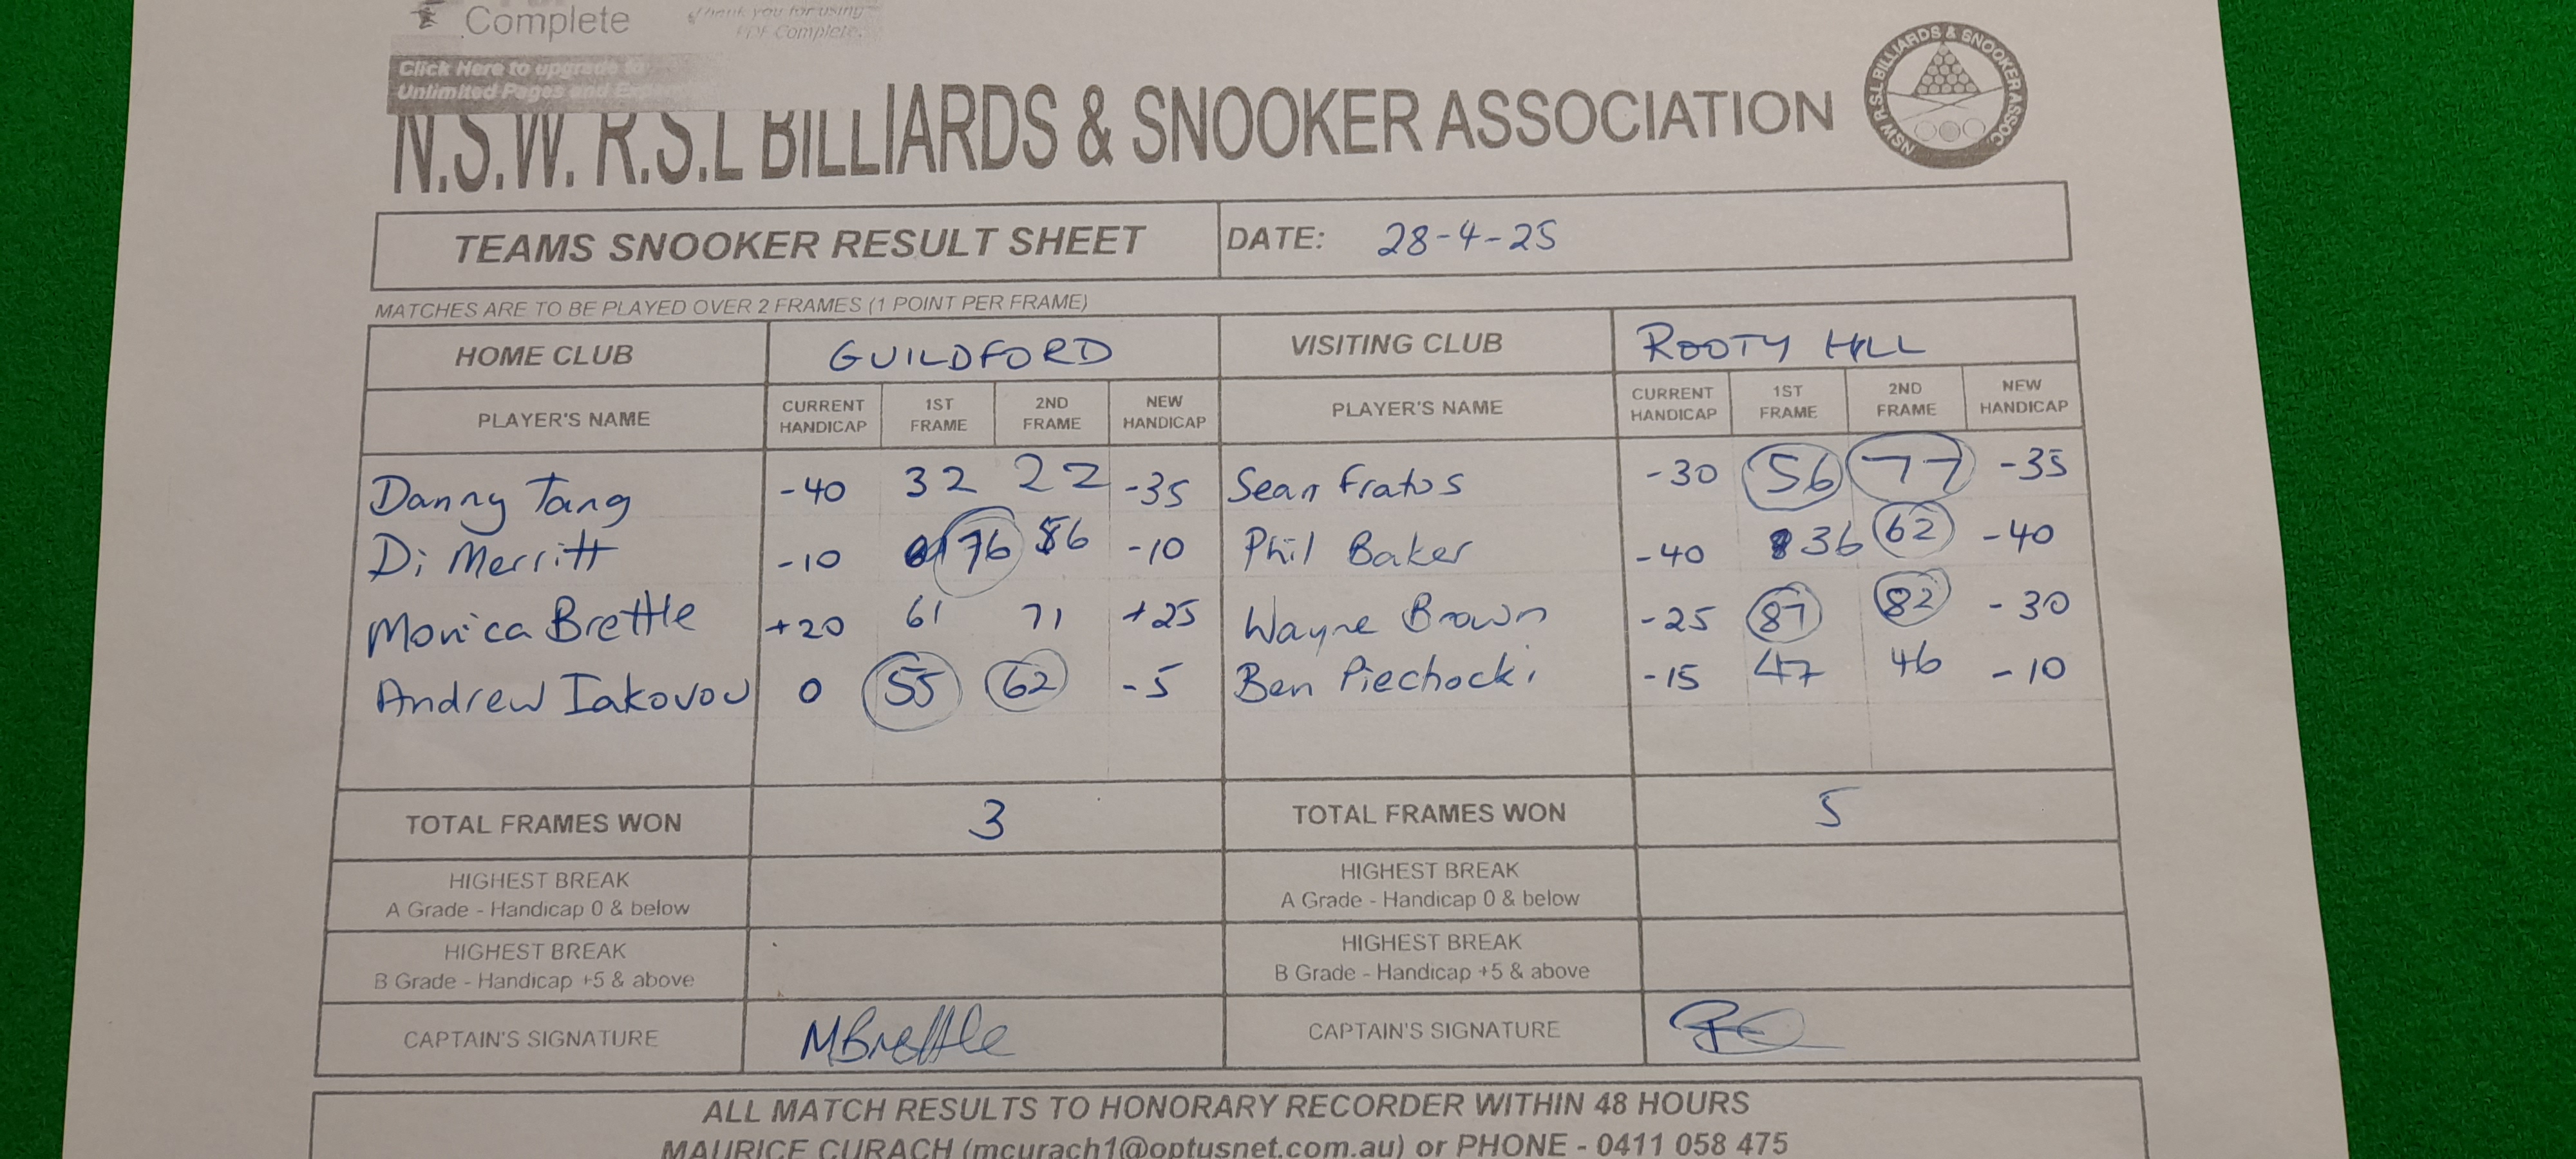 Complete
Thank you for using
PDF Complete.
Click Here to upgrade to
Unlimited Pages and
N.S.W. R.S.L BILLIARDS & SNOOKER ASSOCIATION
NSW RSL BILLIARDS & SNOOKER ASSOC.
TEAMS SNOOKER RESULT SHEET DATE: 28-4-25
MATCHES ARE TO BE PLAYED OVER 2 FRAMES (1 POINT PER FRAME)
HOME CLUB GUILDFORD VISITING CLUB ROOTY HILL
PLAYER'S NAME CURRENT HANDICAP 1ST FRAME 2ND FRAME NEW HANDICAP PLAYER'S NAME CURRENT HANDICAP 1ST FRAME 2ND FRAME NEW HANDICAP
Danny Tang -40 32 22 -35 Sean Fratos -30 56 77 -35
Di Merritt -10 76 56 -10 Phil Baker -40 36 62 -40
Monica Brettle +20 61 71 +25 Wayne Brown -25 87 82 -30
Andrew Iakovou 0 55 62 -5 Ben Piechocki -15 47 46 -10
TOTAL FRAMES WON 3 TOTAL FRAMES WON 5
HIGHEST BREAK A Grade - Handicap 0 & below HIGHEST BREAK A Grade - Handicap 0 & below
HIGHEST BREAK B Grade - Handicap +5 & above HIGHEST BREAK B Grade - Handicap +5 & above
CAPTAIN'S SIGNATURE MBrettle CAPTAIN'S SIGNATURE
ALL MATCH RESULTS TO HONORARY RECORDER WITHIN 48 HOURS
MAURICE CURACH (mcurach1@optusnet.com.au) or PHONE - 0411 058 475